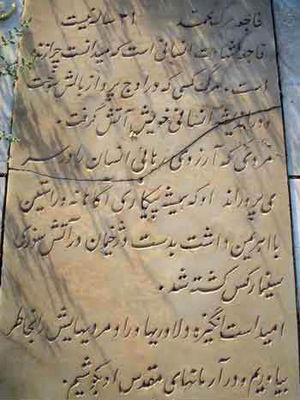 فاجعه مرگ محمد ۲۱ ساله نیست
فاجعه شهادت انسانی است که میدانست چرا زنده
است. مرگ کسی که در اوج پرواز بالش سوخت
و در اندیشه انسانی خویش آتش گرفت.
مردی که آرزوی رهائی انسان را در سر
می پروراند او که همیشه پیکاری آگاهانه و راستین
با اهریمن داشت بدست دژخیمان در آتش سوزی
سینما رکس کشته شد.
امید است انگیزه دلاوریها و مردمیهایش را بخاطر
بیاوریم و در آرمانهای مقدس او بکوشیم.